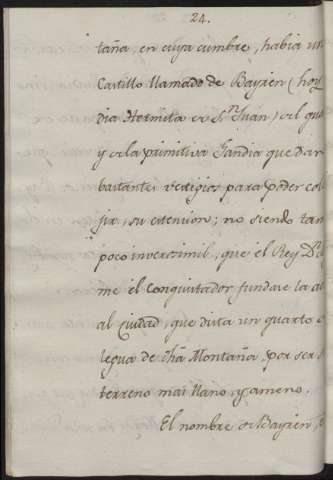 24.
taña, en cuya cumbre, habia un
Castillo llamado de Bayren (hoy
dia Hermita de Sn. Juan) del qu
y de la primitiva Gandia que dan
bastantes vestigios para poder col
jir, su estencion; no siendo tam
poco inverosimil, que el Rey Dn.
me el Conquistador fundase la a
al Ciudad, que dista un quarto
legua de dha Montaña por ser
terreno mas llano, y ameno.
El nombre de Bayren,